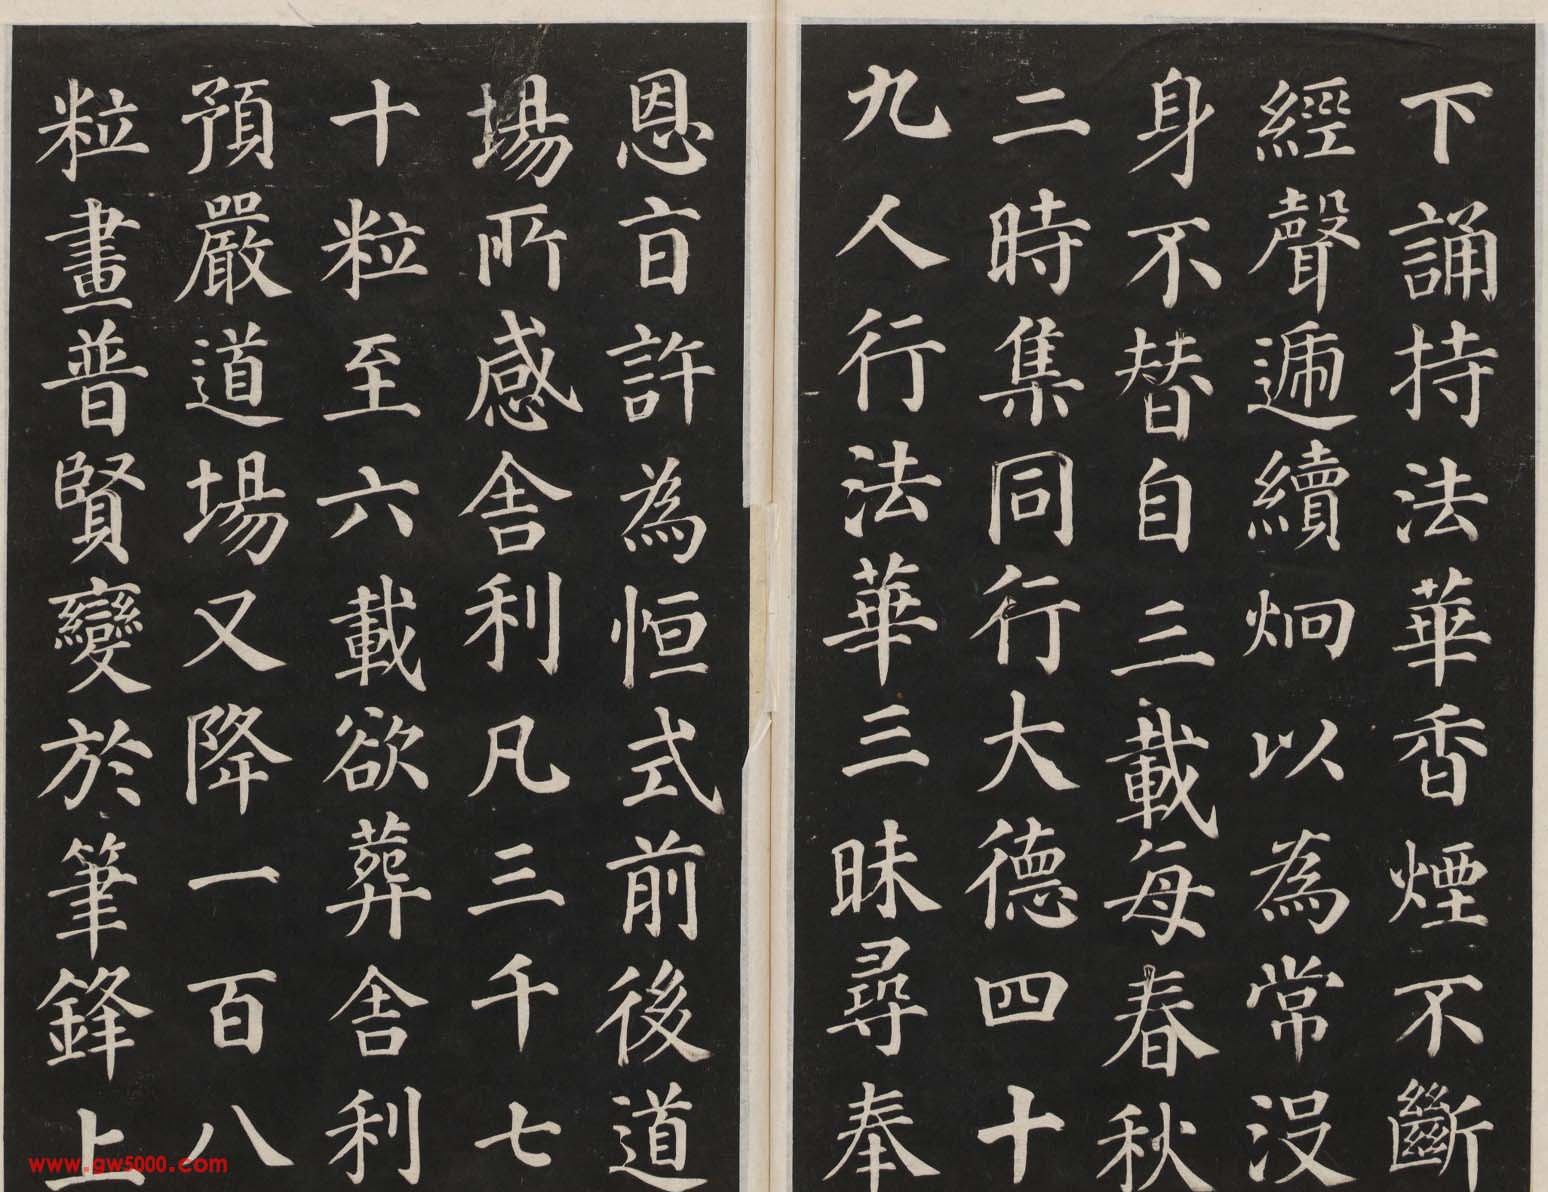 下誦持法華香煙不斷
經聲遞續炯以為常没
身不替自三載每春秋
二時集同行大德四十
九人行法華三昧尋奉
恩旨許為恒式前後道
場所感舍利凡三千七
十粒至六載欲葬舍利
預嚴道場又降一百八
粒畫普賢變於筆鋒上
www.gw5000.com